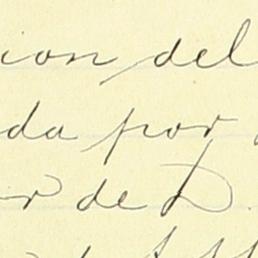 ion del
da por
r de D.